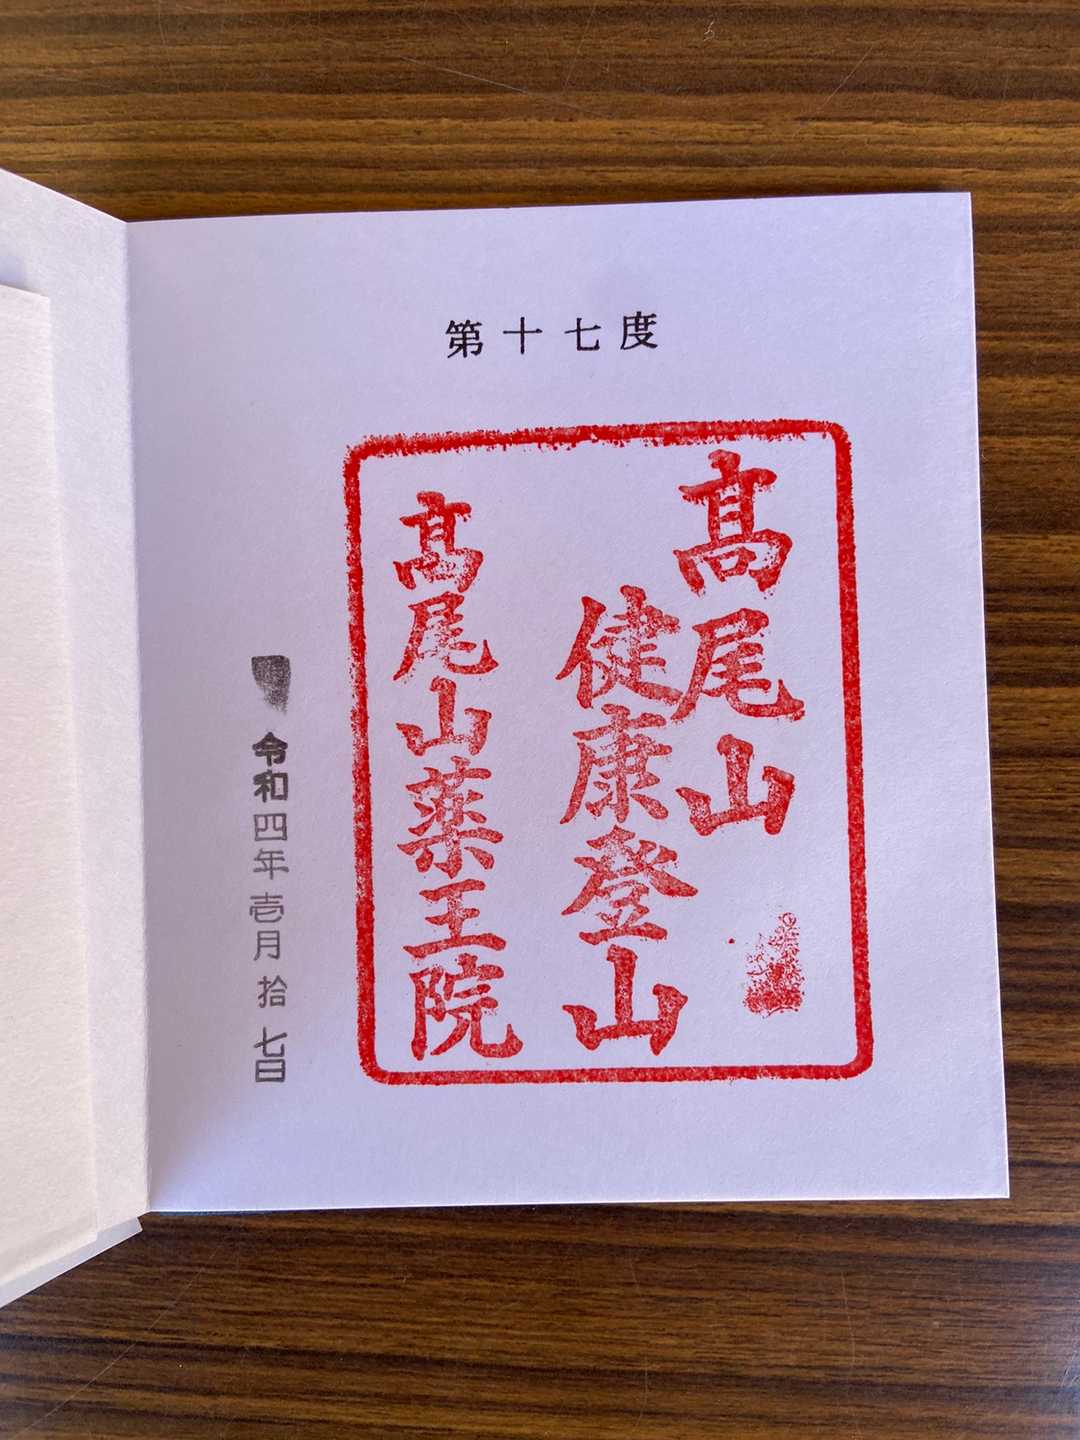 第十七度
髙尾山
健康登山
髙尾山薬王院
令和四年壱月拾七日